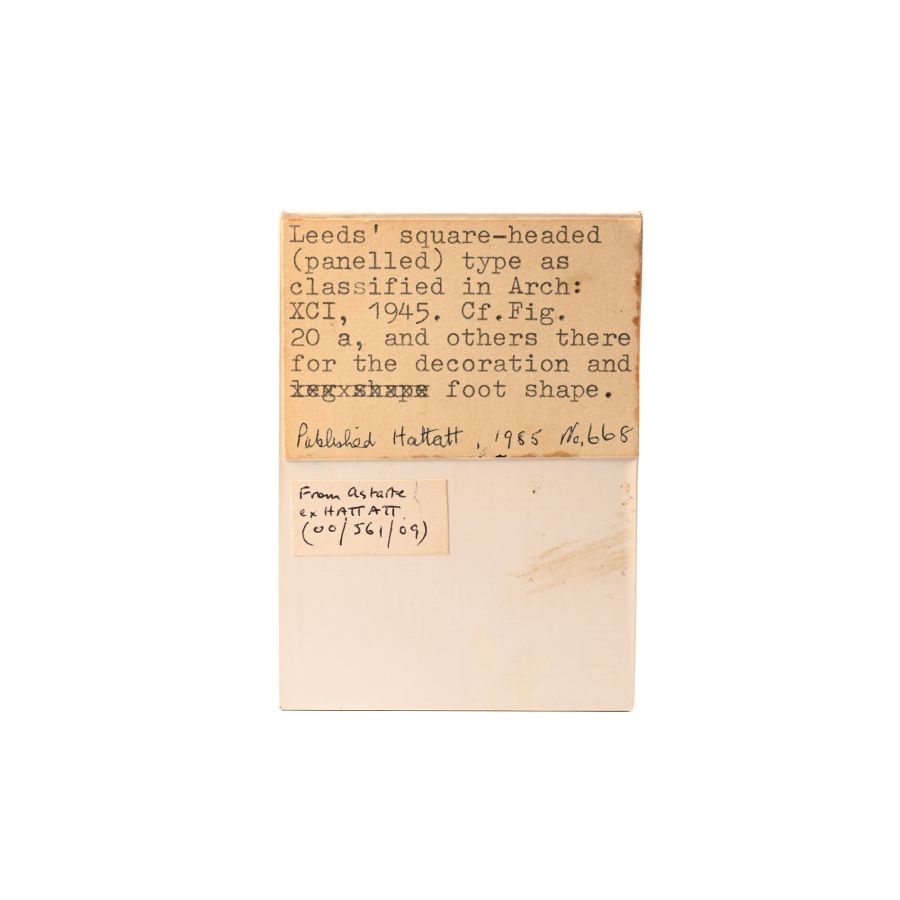 Leeds' square-headed
(panelled) type as
classified in Arch:
XCI, 1945. Cf.Fig.
20 a, and others there
for the decoration and
leg shape foot shape.
Published Hattatt, 1985 No,668
From Astarte
ex HATTATT.
(00/561/09)